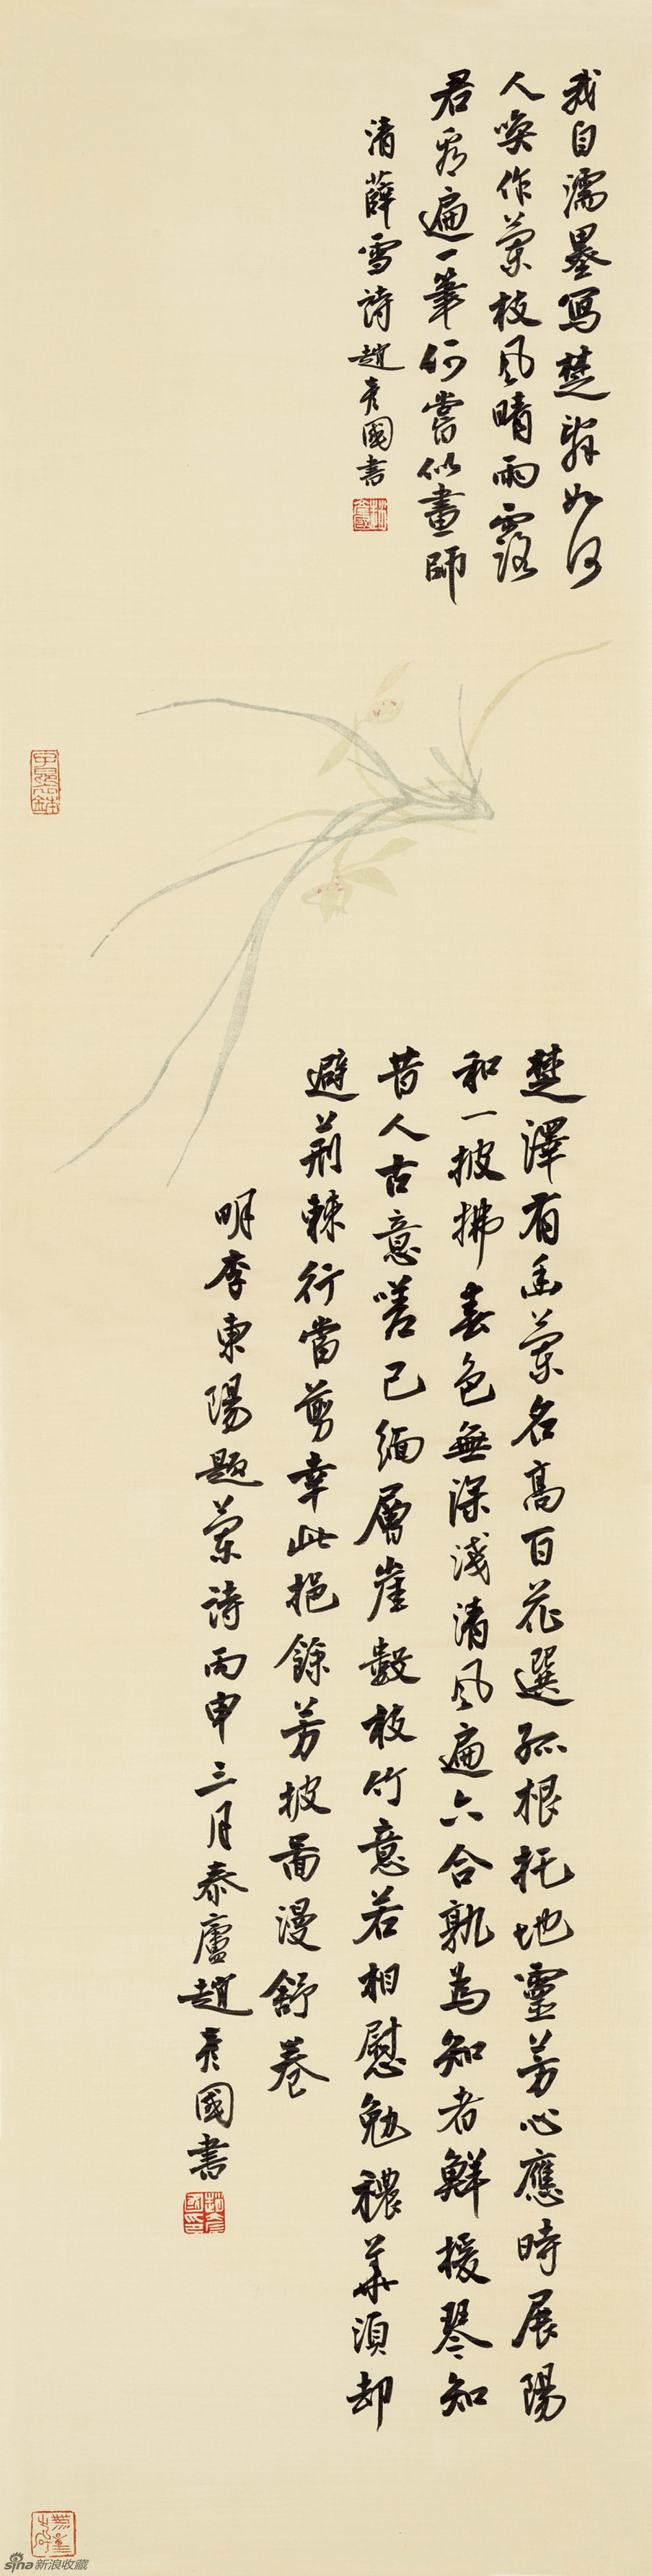 我自濡墨寫楚辭如何
人喚作蘭枝風晴雨露
君看遍一筆何嘗似畫師
清薛雪詩趙彥國書
楚澤有幽蘭名高百花選孤根托地靈芳心應時展陽
和一披拂春色無深淺清風遍六合孰為知者鮮援琴知
昔人古意嗟已緬層崖數枝竹意若相慰勉穠華須却
避荆棘行當剪幸此挹餘芳披圖漫舒卷
明李東陽題蘭詩丙申三月泰廬趙彥國書
sina新浪收藏